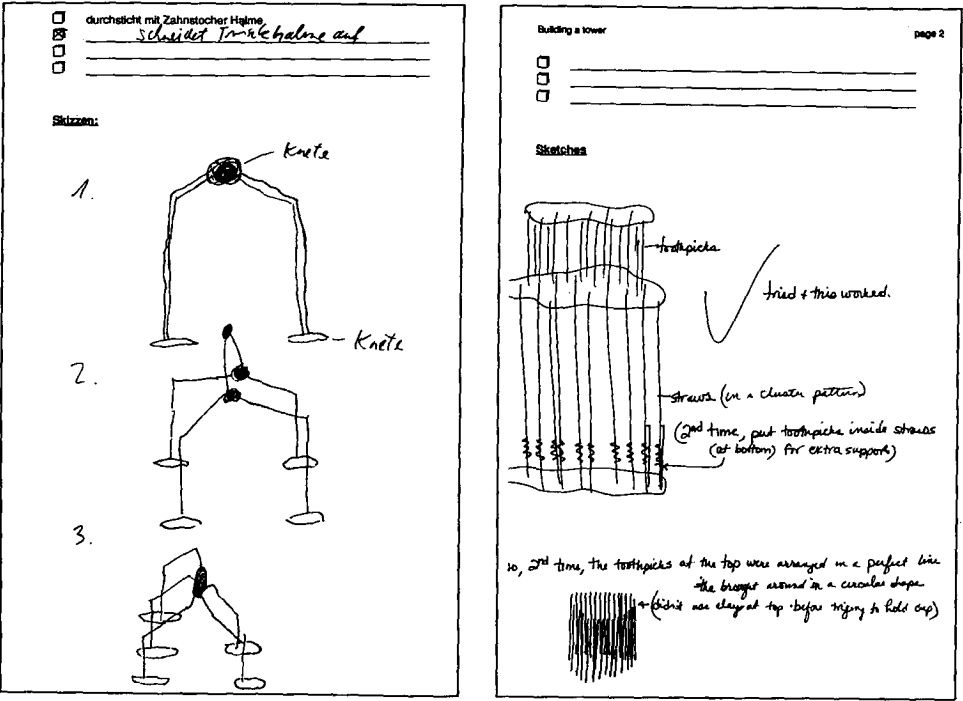 durchsticht mit Zahnstocher Halme
schneidet Trinkhalme auf
Skizzen:
1.
Knete
Knete
2.
3.
Building a tower page 2
Sketches
toothpicks
tried + this worked.
straws (in a cluster pattern)
(2nd time, put toothpicks inside straws
(at bottom) for extra support)
so, 2nd time, the toothpicks at the top were arranged in a perfect line
the brought around in a circular shape
(didn't use clay at top before trying to hold cup)